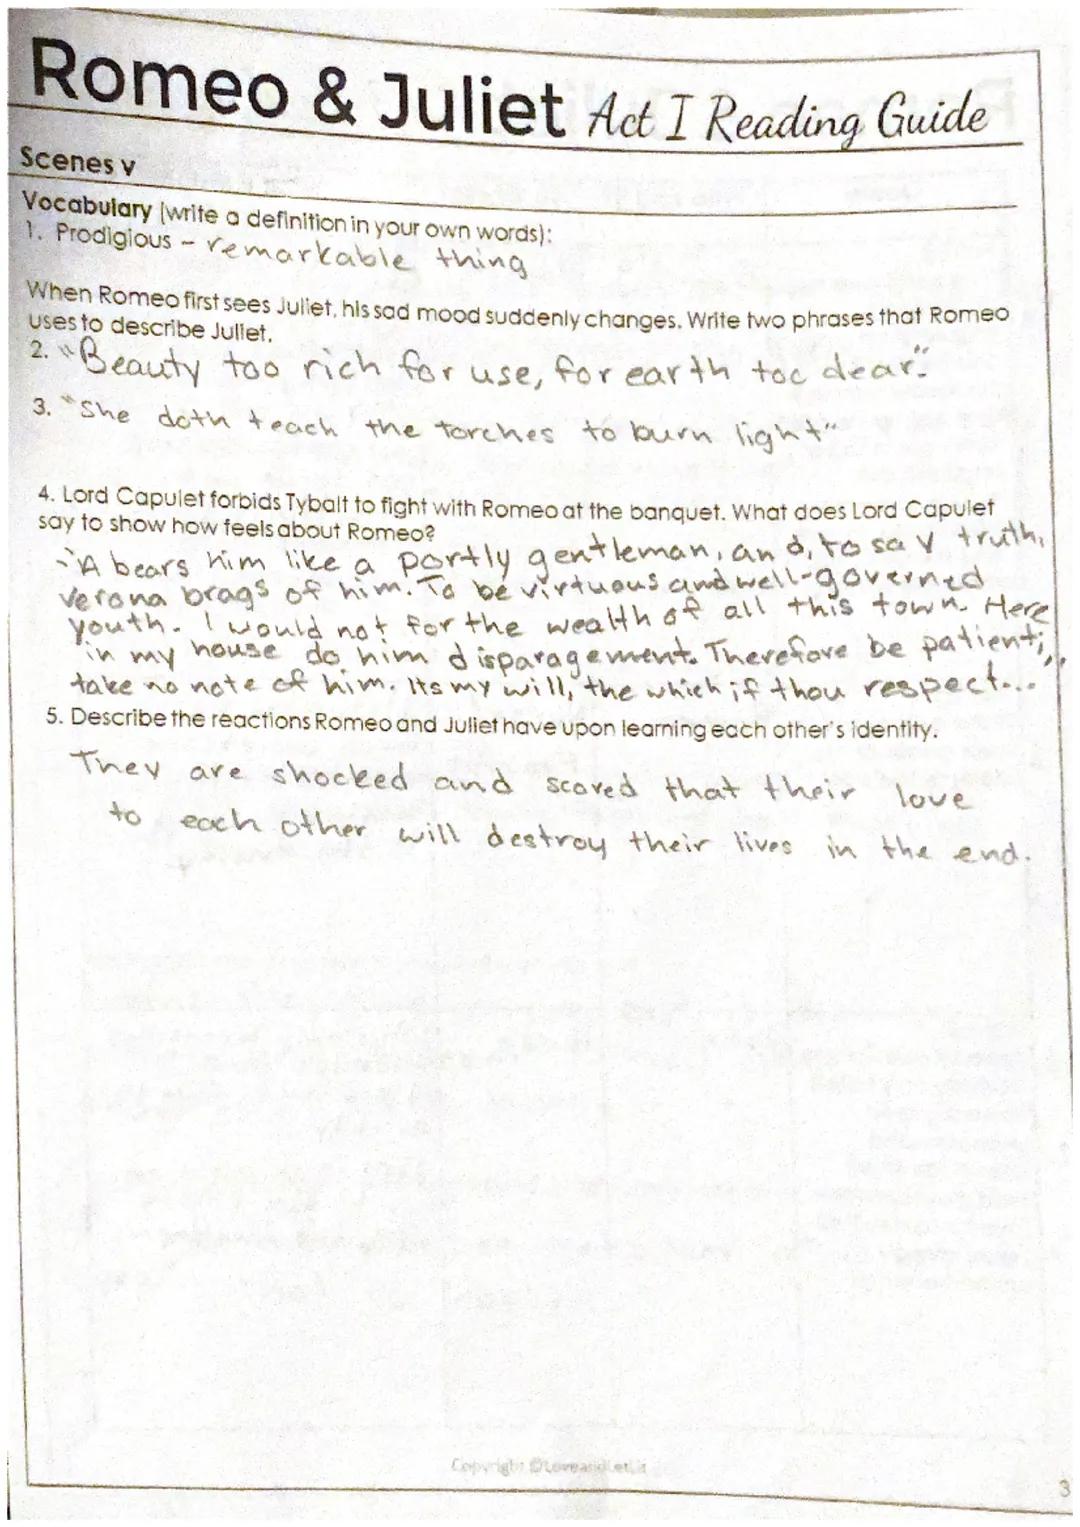 Romeo & Juliet Act I Reading Guide
Scenes v
Vocabulary (write a definition in your own words):
1. Prodigious - remarkable thing
When Romeo first sees Juliet, his sad mood suddenly changes. Write two phrases that Romeo
uses to describe Juliet.
2. "Beauty too rich for use, for earth too dear".
3. "She doth teach the torches to burn light"
4. Lord Capulet forbids Tybalt to fight with Romeo at the banquet. What does Lord Capulet
say to show how feels about Romeo?
"A bears him like a portly gentleman, and, to say truth,
Verona brags of him. To be virtuous and well-governed
youth. I would not for the wealth of all this town. Here
in my house do him disparagement. Therefore be patient;,
take no note of him. Its my will, the which if thou respect...
5. Describe the reactions Romeo and Juliet have upon learning each other's identity.
They are shocked and scared that their love
to each other will destroy their lives in the end.
Copyright ©LoveandLetLit
3